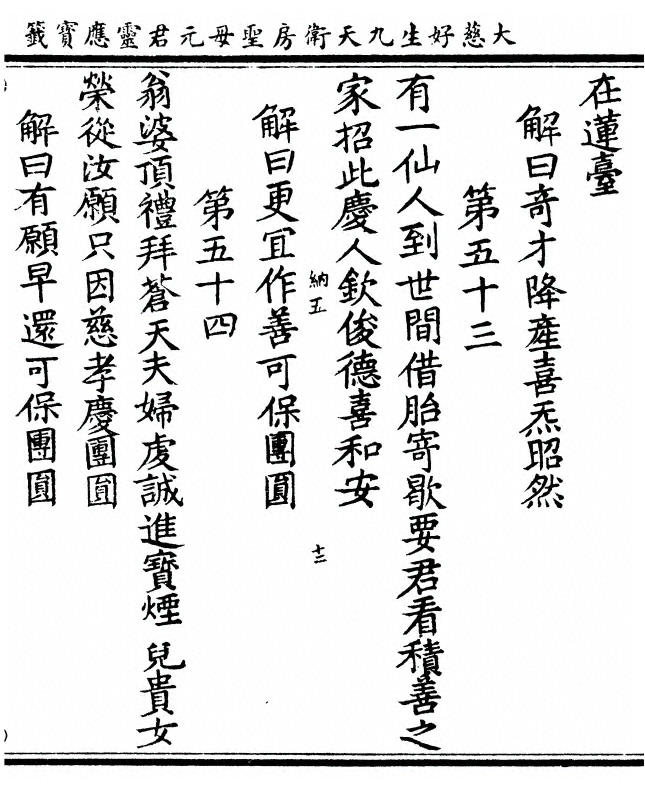 大慈好生九天衛房聖母元君靈應寶籤
在蓮臺
解曰奇才降產喜炁昭然
第五十三
有一仙人到世間借胎寄歇要君看積善之
家招此慶人欽俊德喜和安
納五
十二
解曰更宜作善可保團圓
第五十四
翁婆頂禮拜蒼天夫婦虔誠進寶煙兒貴女
榮從汝願只因慈孝慶團圓
解曰有願早還可保團圓